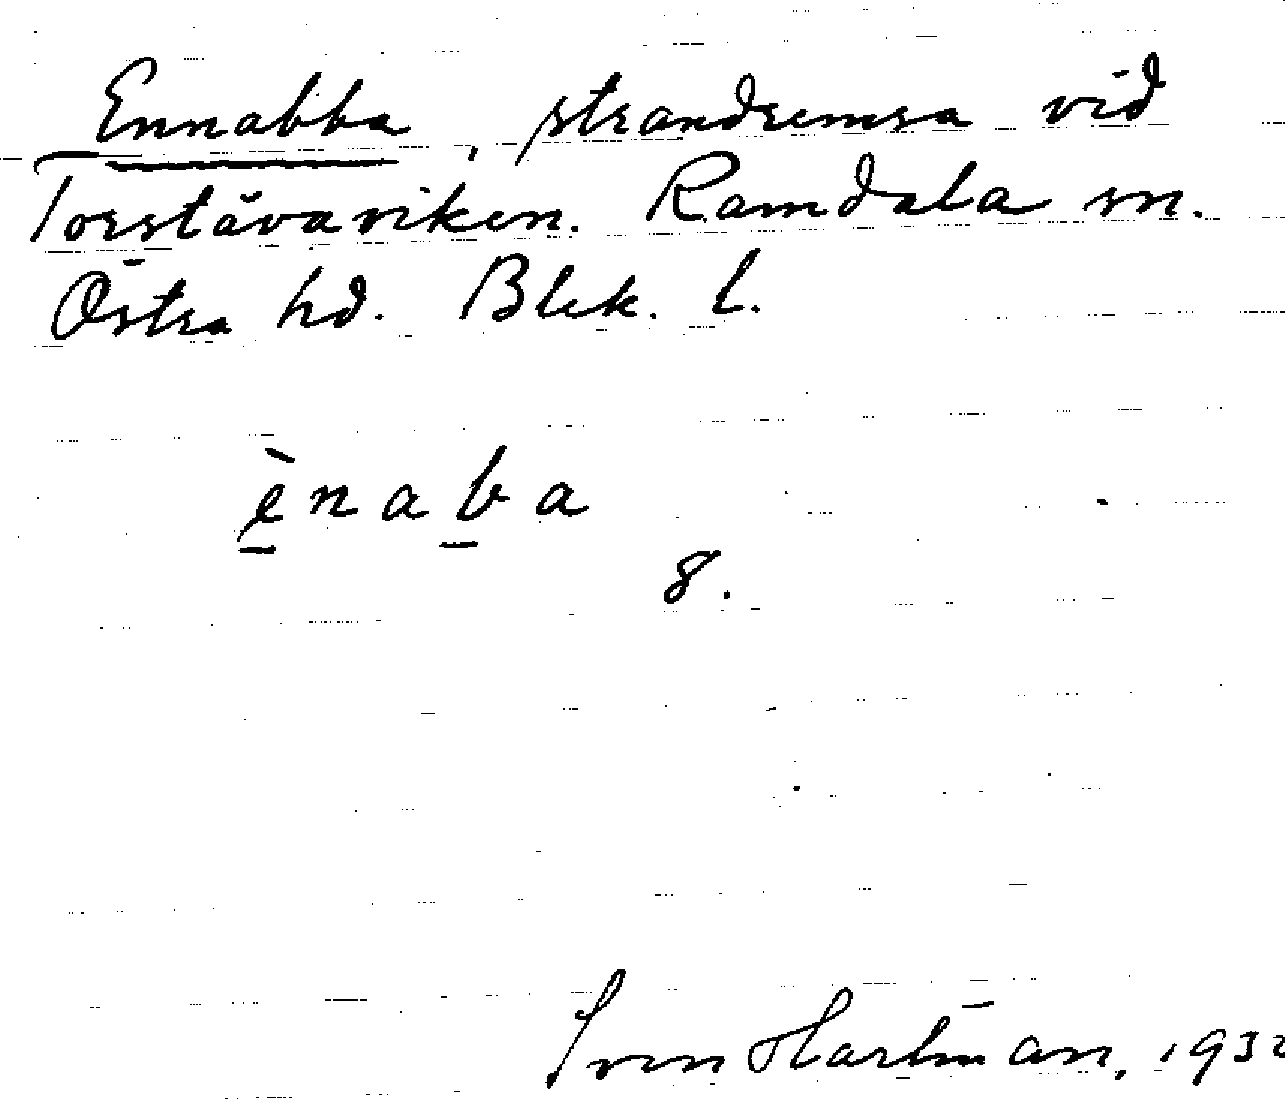 Ennabba, strandremsa vid
Torstävaviken. Ramdala sn.
Östra hd. Blek. l.
ènaba
8.
Sven Hartman, 1932